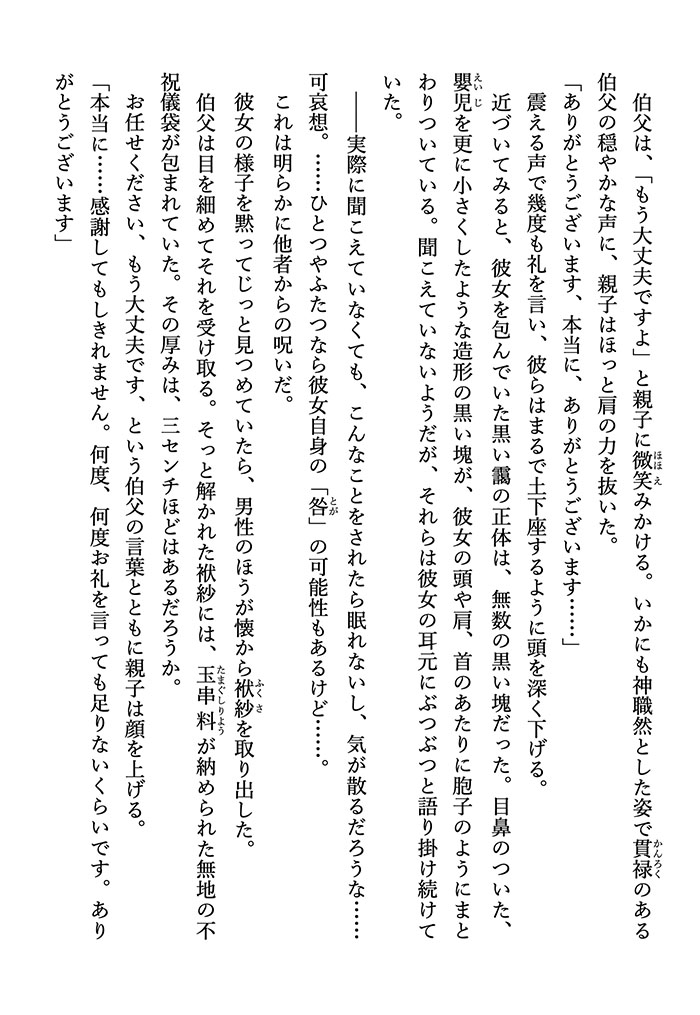 伯父は、「もう大丈夫ですよ」と親子に微笑みかける。いかにも神職然とした姿で貫禄のある
伯父の穏やかな声に、親子はほっと肩の力を抜いた。
「ありがとうございます、本当に、ありがとうございます……」
震える声で幾度も礼を言い、彼らはまるで土下座するように頭を深く下げる。
近づいてみると、彼女を包んでいた黒い靄の正体は、無数の黒い塊だった。目鼻のついた、
嬰児を更に小さくしたような造形の黒い塊が、彼女の頭や肩、首のあたりに胞子のようにまと
わりついている。聞こえていないようだが、それらは彼女の耳元にぶつぶつと語り掛け続けて
いた。
――実際に聞こえていなくても、こんなことをされたら眠れないし、気が散るだろうな……
可哀想。……ひとつやふたつなら彼女自身の「咎」の可能性もあるけど……。
これは明らかに他者からの呪いだ。
彼女の様子を黙ってじっと見つめていたら、男性のほうが懐から袱紗を取り出した。
伯父は目を細めてそれを受け取る。そっと解かれた袱紗には、玉串料が納められた無地の不
祝儀袋が包まれていた。その厚みは、三センチほどはあるだろうか。
お任せください、もう大丈夫です、という伯父の言葉とともに親子は顔を上げる。
「本当に……感謝してもしきれません。何度、何度お礼を言っても足りないくらいです。あり
がとうございます」